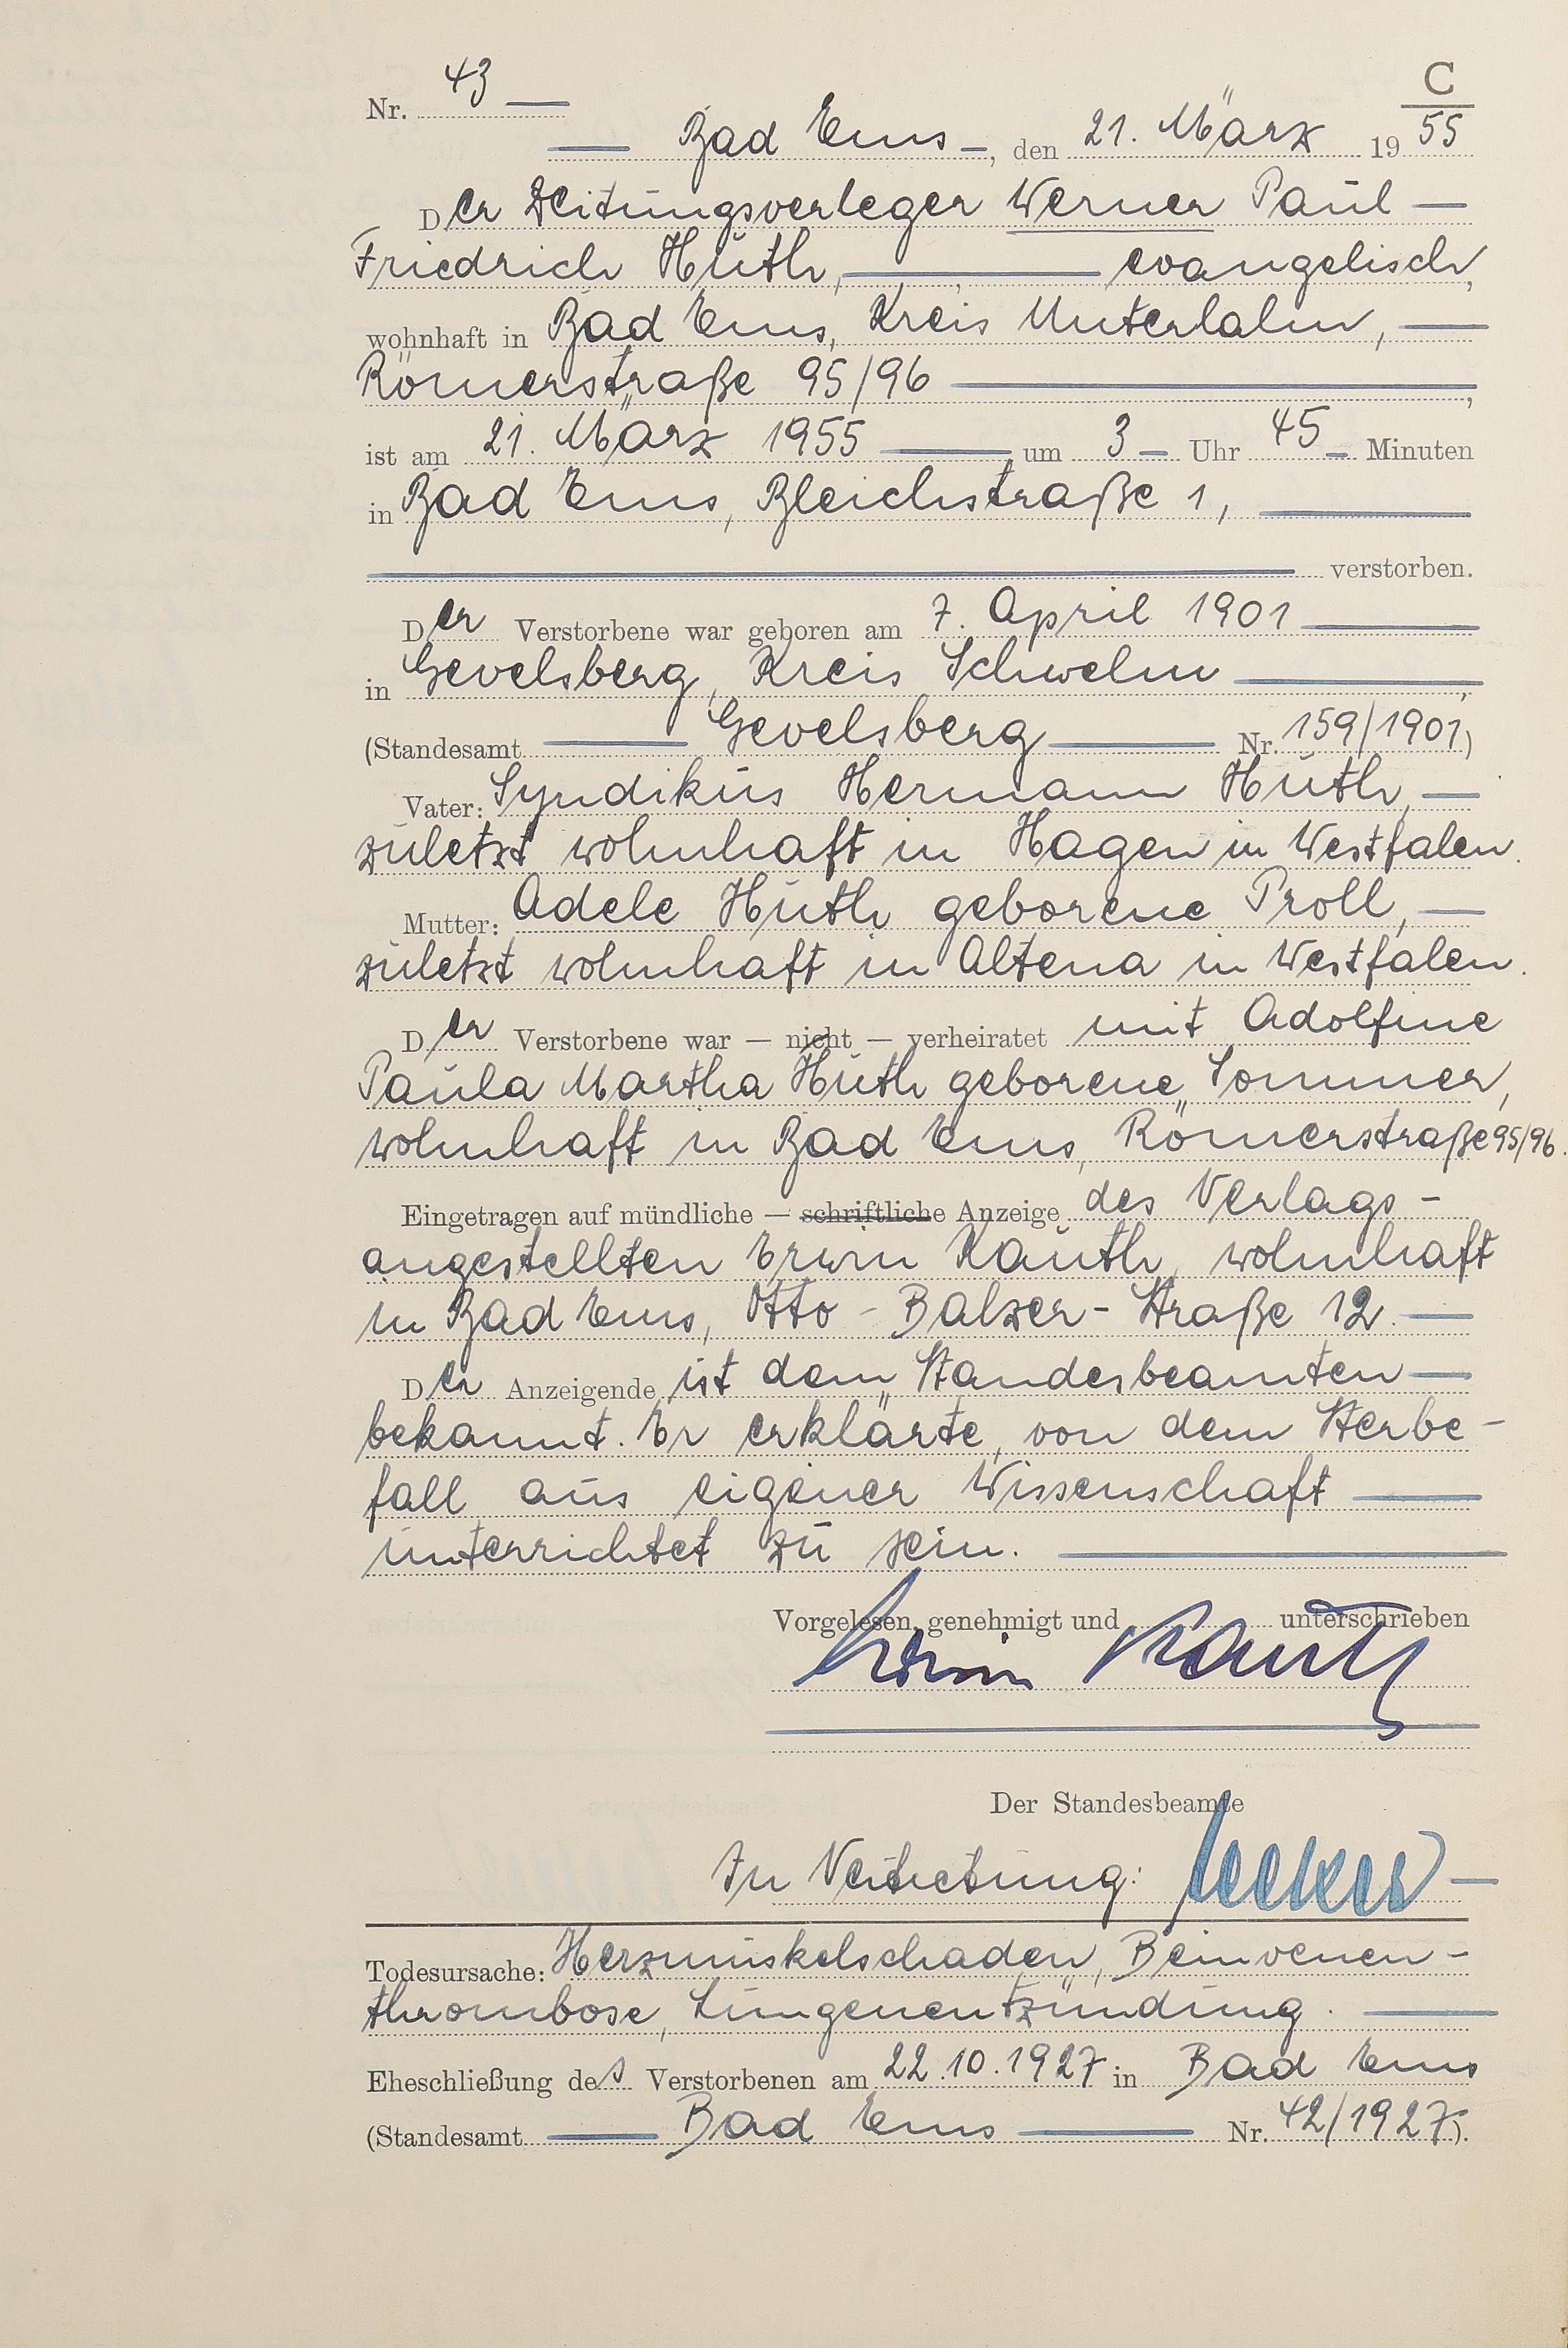 C
Nr. 43 —
— Bad Ems —, den 21. März 1955
Der Zeitungsverleger Werner Paul —
Friedrich Huth, — evangelisch,
wohnhaft in Bad Ems, Kreis Unterlahn, —
Römerstraße 95/96 —,
ist am 21. März 1955 — um 3 — Uhr 45 — Minuten
in Bad Ems, Bleichstraße 1, —
— verstorben.
Der Verstorbene war geboren am 7. April 1901 —
in Gevelsberg, Kreis Schwelm —,
(Standesamt — Gevelsberg — Nr. 159/1901)
Vater: Syndikus Hermann Huth, —
zuletzt wohnhaft in Hagen in Westfalen.
Mutter: Adele Huth geborene Proll, —
zuletzt wohnhaft in Altena in Westfalen.
Der Verstorbene war — nicht — verheiratet mit Adolfine
Paula Martha Huth geborene Sommer,
wohnhaft in Bad Ems, Römerstraße 95/96.
Eingetragen auf mündliche — schriftliche Anzeige des Verlags-
angestellten Erwin Kauth, wohnhaft
in Bad Ems, Otto-Balzer-Straße 12. —
Der Anzeigende ist dem Standesbeamten —
bekannt. Er erklärte, von dem Sterbe-
fall aus eigener Wissenschaft —
unterrichtet zu sein. —
Vorgelesen, genehmigt und unterschrieben
Erwin Kauth
Der Standesbeamte
In Vertretung: —
Todesursache: Herzmuskelschaden, Beinvenen-
thrombose, Lungenentzündung. —
Eheschließung des Verstorbenen am 22.10.1927 in Bad Ems
(Standesamt — Bad Ems — Nr. 42/1927).